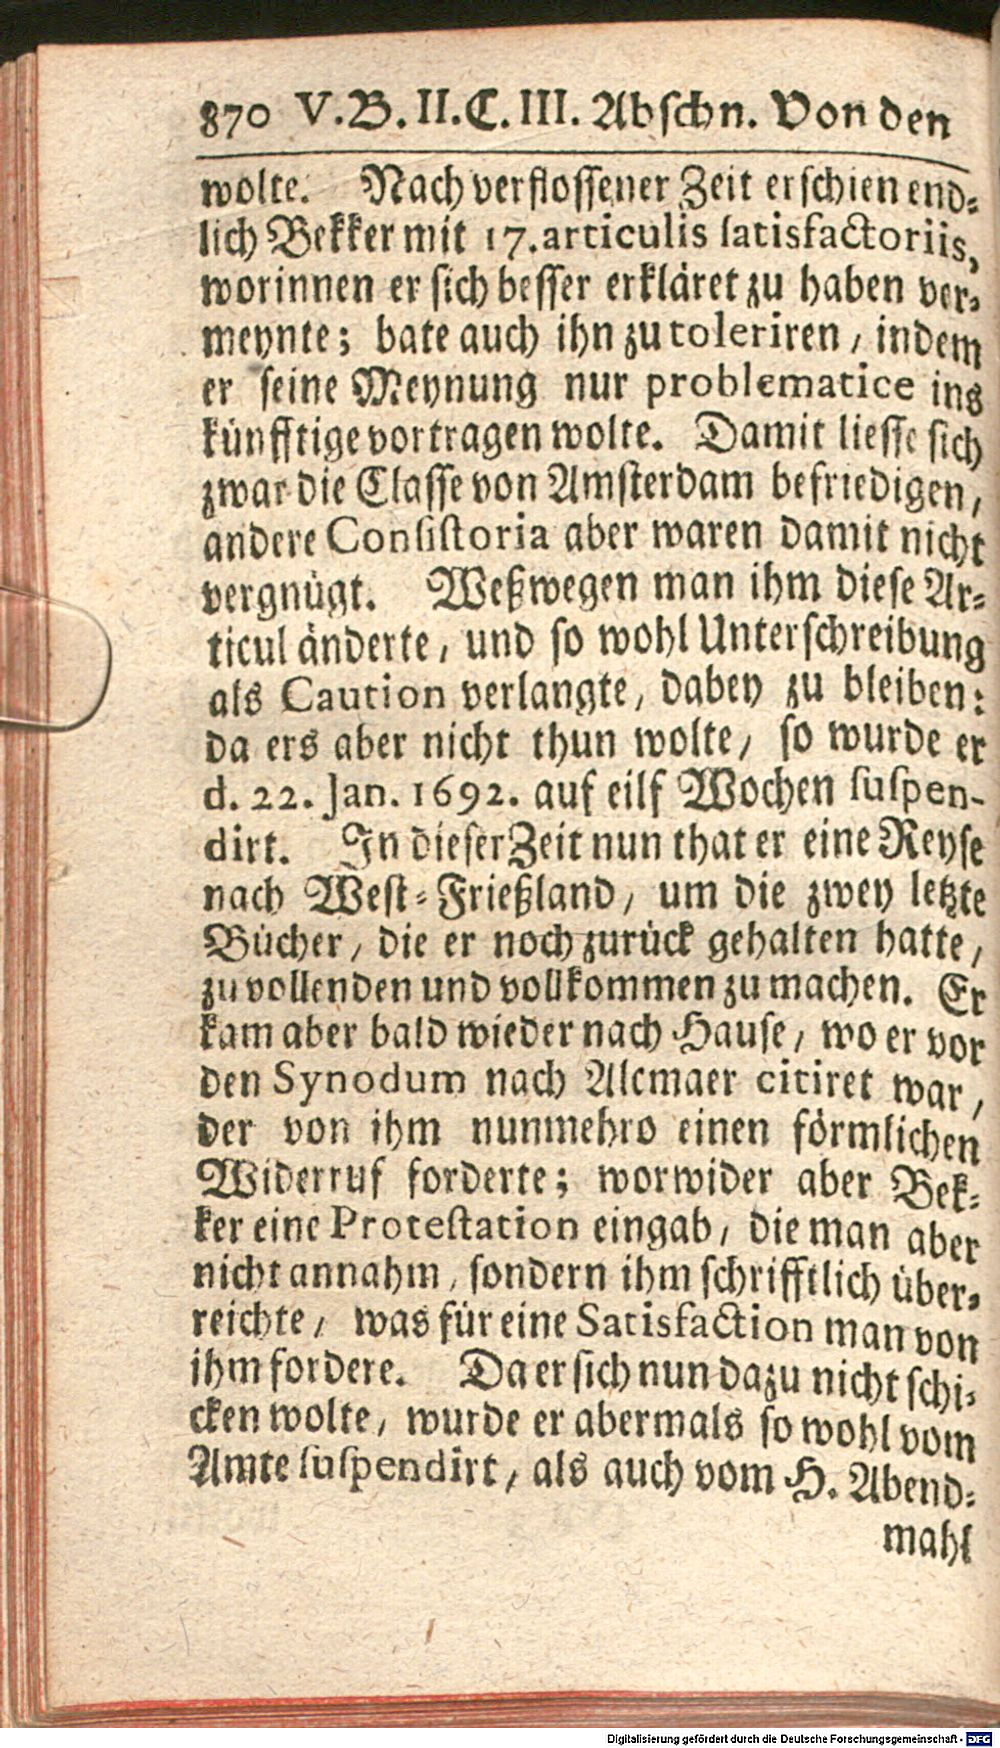 870 V. B. II. C. III. Abschn. Von den
wolte. Nach verflossener Zeit erschien end-
lich Bekker mit 17. articulis satisfactoriis,
worinnen er sich besser erkläret zu haben ver-
meynte; bate auch ihn zu toleriren / indem
er seine Meynung nur problematice ins
künfftige vortragen wolte. Damit liesse sich
zwar die Classe von Amsterdam befriedigen /
andere Consistoria aber waren damit nicht
vergnügt. Weßwegen man ihm diese Ar-
ticul änderte / und so wohl Unterschreibung
als Caution verlangte / dabey zu bleiben:
da ers aber nicht thun wolte / so wurde er
d. 22. Jan. 1692. auf eilf Wochen suspen-
dirt. In dieser Zeit nun that er eine Reyse
nach West-Frießland / um die zwey letzte
Bücher / die er noch zurück gehalten hatte /
zu vollenden und vollkommen zu machen. Er
kam aber bald wieder nach Hause / wo er vor
den Synodum nach Alcmaer citiret war /
der von ihm nunmehro einen förmlichen
Widerruf forderte; worwider aber Bek-
ker eine Protestation eingab / die man aber
nicht annahm / sondern ihm schrifftlich über-
reichte / was für eine Satisfaction man von
ihm fordere. Da er sich nun dazu nicht schi-
cken wolte / wurde er abermals so wohl vom
Amte suspendirt / als auch vom H. Abend-
mahl
Digitalisierung gefördert durch die Deutsche Forschungsgemeinschaft - DFG